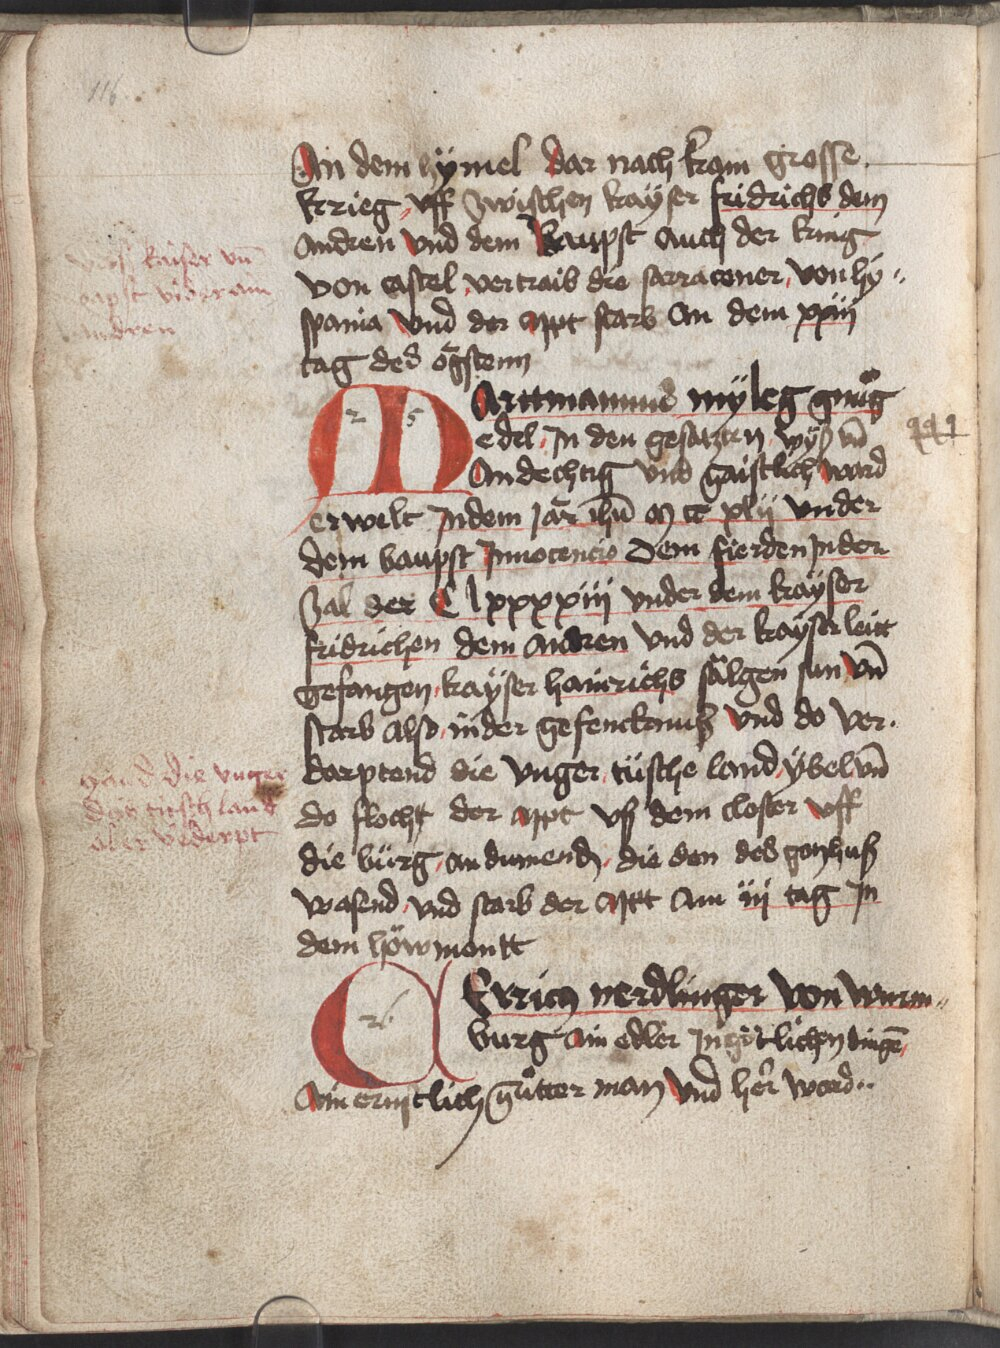 116
An dem hymel dar nach kam grosse
krieg uff zwischen kayser fridrichs dem
andren und dem baupst auch der küng
von castel vertraib die sarracener von hÿ„
spania und der appt starb an dem xxiij
tag des ögsten
kaiser un̄
bapst wider ain
andren
Marttmannus mÿleg gnuͦg
2 5
edel in den gesatzten wÿß un̄
andechtig und gaistlich ward
erwelt Jn dem jar ihū m cc xlij under
dem baupst Jnnocencio dem fierden Jn der
zal der C lxxxxiiij under dem kayser
fridrichen dem andren und der kayser leitt
gefangen kayser hainrichs sälgen sun un̄
starb also in der gefencknuß und do ver„
darptend die unger tüsche land ÿbel un̄
do flocht der appt uß dem closter uff
die bürg an dumend die den des gotzhuß
wasend und starb der appt am iij tag Jn
dem höwmontt
die unger
das tusch land
ubel vederpt
Errich nerdlinger von wurm„
26
burg ain edler Jn götlichen dingē
ain ernstlich guͦtter man und her ward..